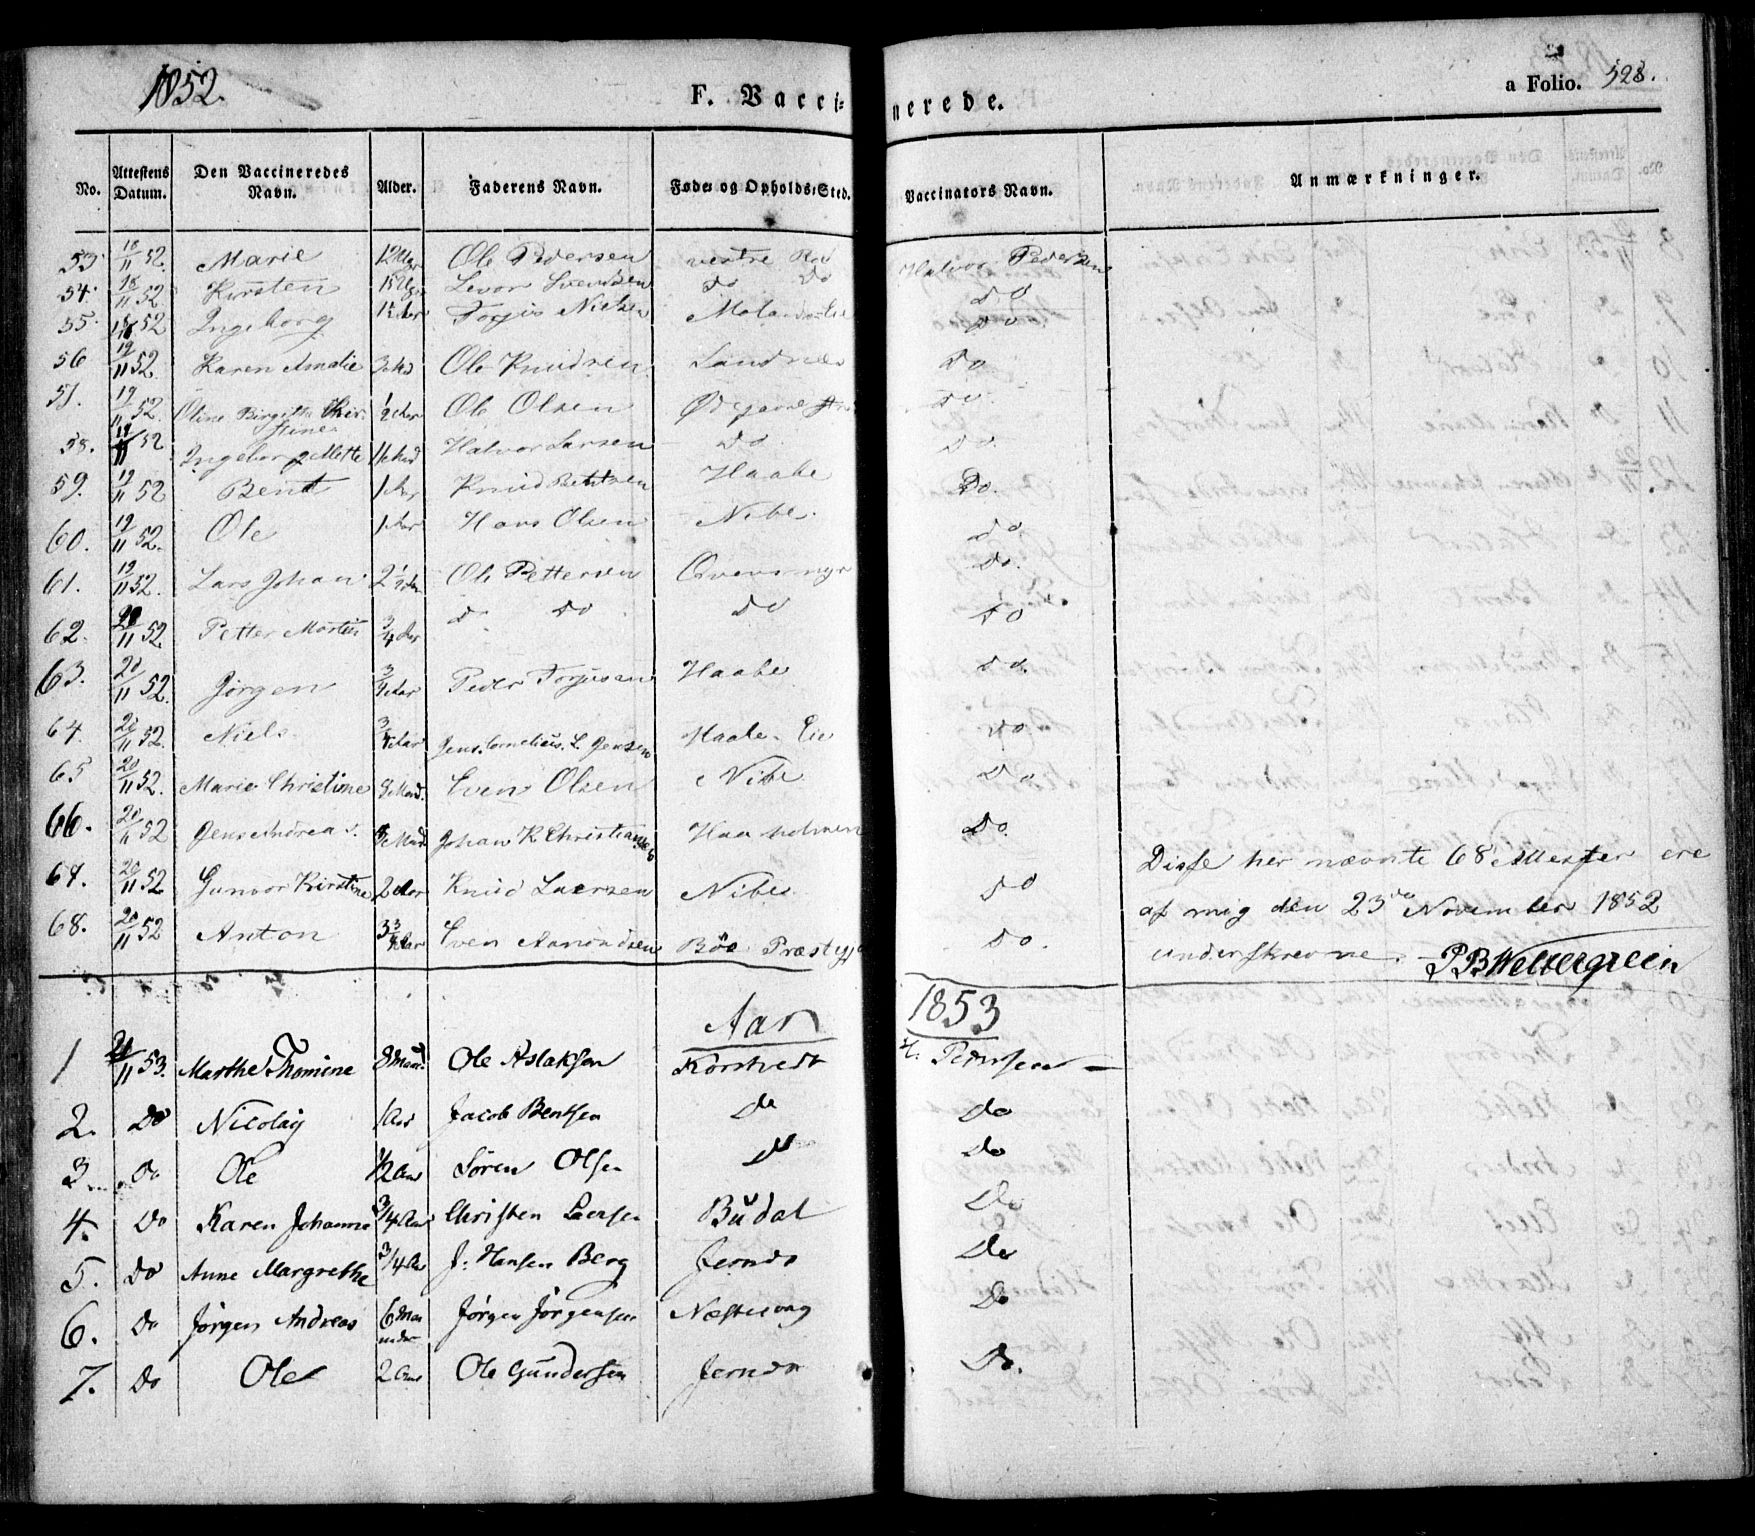 1852.
F. Vaccinerede.
a Folio. 528.
No. Attestens Datum. Den Vaccineredes Navn. Alder. Faderens Navn. Føde- og Opholds-Sted. Vaccinators Navn. Anmærkninger.
53 18/11 52. Marie Ole Pedersen vestre Halvor Pedersen
54. 18/11 52 Kirsten Levor Svendsen Do Do Do
55. 52 Ingeborg Torjus Nielsen Do
56 19/11 52. Karen Amalie Ole Knudsen Sandnæs Do
57. 19/11 52. Oline Birgitte Kirstine 1/2 Aar Ole Olsen Do
58. 19/11 52 Ingeborg Mette Halvor Larsen Do Do.
59. 19/11 52 Bent 1 Aar Knud Bentsen Haabe Do.
60. 19/11 52. Ole 1 Aar Hans Olsen Nibe. Do
61. 19/11 52. Lars Johan 2 1/2 Aar Ole Pettersen Do.
62. 20/11 52. Petter Martin 3/4 Aar Do Do Do Do
63. 20/11 52. Jørgen 3/4 Aar Peder Torjusen Haabe Do.
64. 20/11 52. Niels. 3/4 Aar Jens Cornelius L. Jensen Haabe Eie Do
65 20/11 52. Marie Christine 8 Maad. Sven Olsen Nibe Do
66. 20/11 52 Jens Andreas. Johan K Christiansen Haaholmen Do.
67. 20/11 52 Gunvor Kirstine 2 Aar Knud Laersen Nibe Do
68. 20/11 52 Anton 3 3/4 Aar Sven Aanondsen Do.
Disse her nævnte 68 Attester ere
af mig den 23de November 1852
underskrevne.
Aar 1853
1 11 53. Marthe Thomine 8 Maad. Ole Aslaksen H. Pedersen
2. Do Nicolay 1 Aar Jacob Bentsen Do Do
3. Do Ole 1/2 Aar Søren Olsen Do Do
4. Do Karen Johanne 3/4 Aar Christen Laersen Budal Do
5. Do Anne Margrethe 3/4 Aar J. Hansen Berg Do
6. Do Jørgen Andreas 6 Maaneder Jørgen Jørgensen Do
7. Do Ole 2 Aar Ole Gundersen Do.